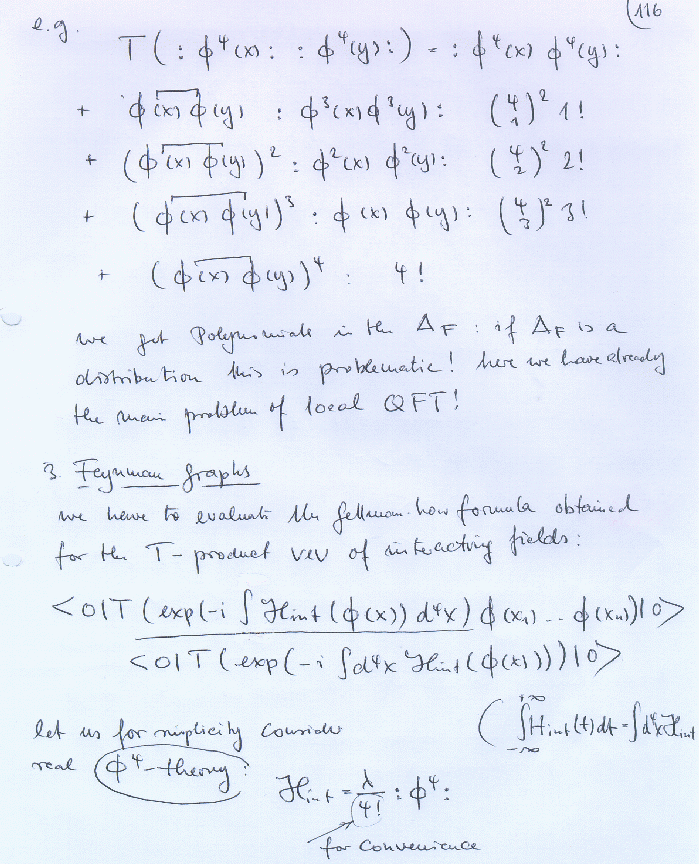 116
e.g.
T ( : ϕ⁴(x) : : ϕ⁴(y) : ) = : ϕ⁴(x) ϕ⁴(y) :
+ ϕ(x) ϕ(y) : ϕ³(x) ϕ³(y) : (4 1)² 1!
+ (ϕ(x) ϕ(y))² : ϕ²(x) ϕ²(y) : (4 2)² 2!
+ (ϕ(x) ϕ(y))³ : ϕ(x) ϕ(y) : (4 3)² 3!
+ (ϕ(x) ϕ(y))⁴ : 4!
we get Polynomials in the Δ_F : if Δ_F is a
distribution this is problematic! here we have already
the main problem of local QFT!
3. Feynman graphs
we have to evaluate the gellman-low formula obtained
for the T-product vev of interacting fields:
<0|T (exp(-i ∫ ℋint (ϕ(x)) d⁴x) ϕ(x₁) ... ϕ(xₙ)|0>
<0|T (exp(-i ∫d⁴x ℋint(ϕ(x)))|0>
let us for simplicity consider
( ∫_{-∞}^{+∞} Hint(t)dt = ∫d⁴x ℋint
real ϕ⁴-theory:
ℋint = λ/4! : ϕ⁴ :
for convenience